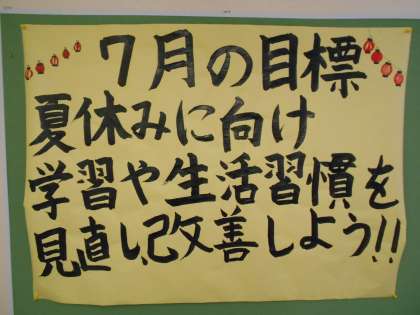 7月の目標
夏休みに向け
学習や生活習慣を
見直し、改善しよう!!